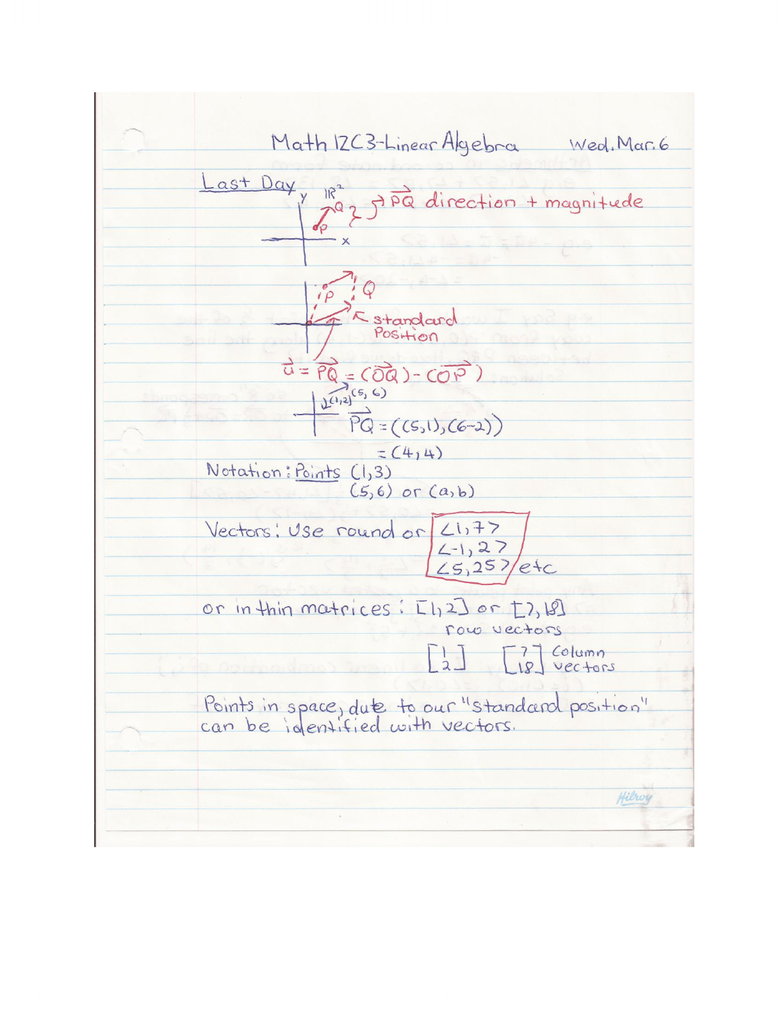 Math 12C3-Linear Algebra Wed. Mar. 6
Last Day
y ℝ²
Q → PQ⃗ direction + magnitude
P
x
P Q
standard
Position
u⃗ = PQ⃗ = (OQ⃗) - (OP⃗)
(1,2) (5,6)
PQ⃗ = ((5,1),(6-2))
= (4,4)
Notation: Points (1,3)
(5,6) or (a,b)
Vectors: Use round or <1,7>
<-1,2>
<5,25> etc
or in thin matrices: [1,2] or [7,18]
row vectors
[1 [7 Column
2] 18] vectors
Points in space, dute to our "standard position"
can be identified with vectors.
Hilroy